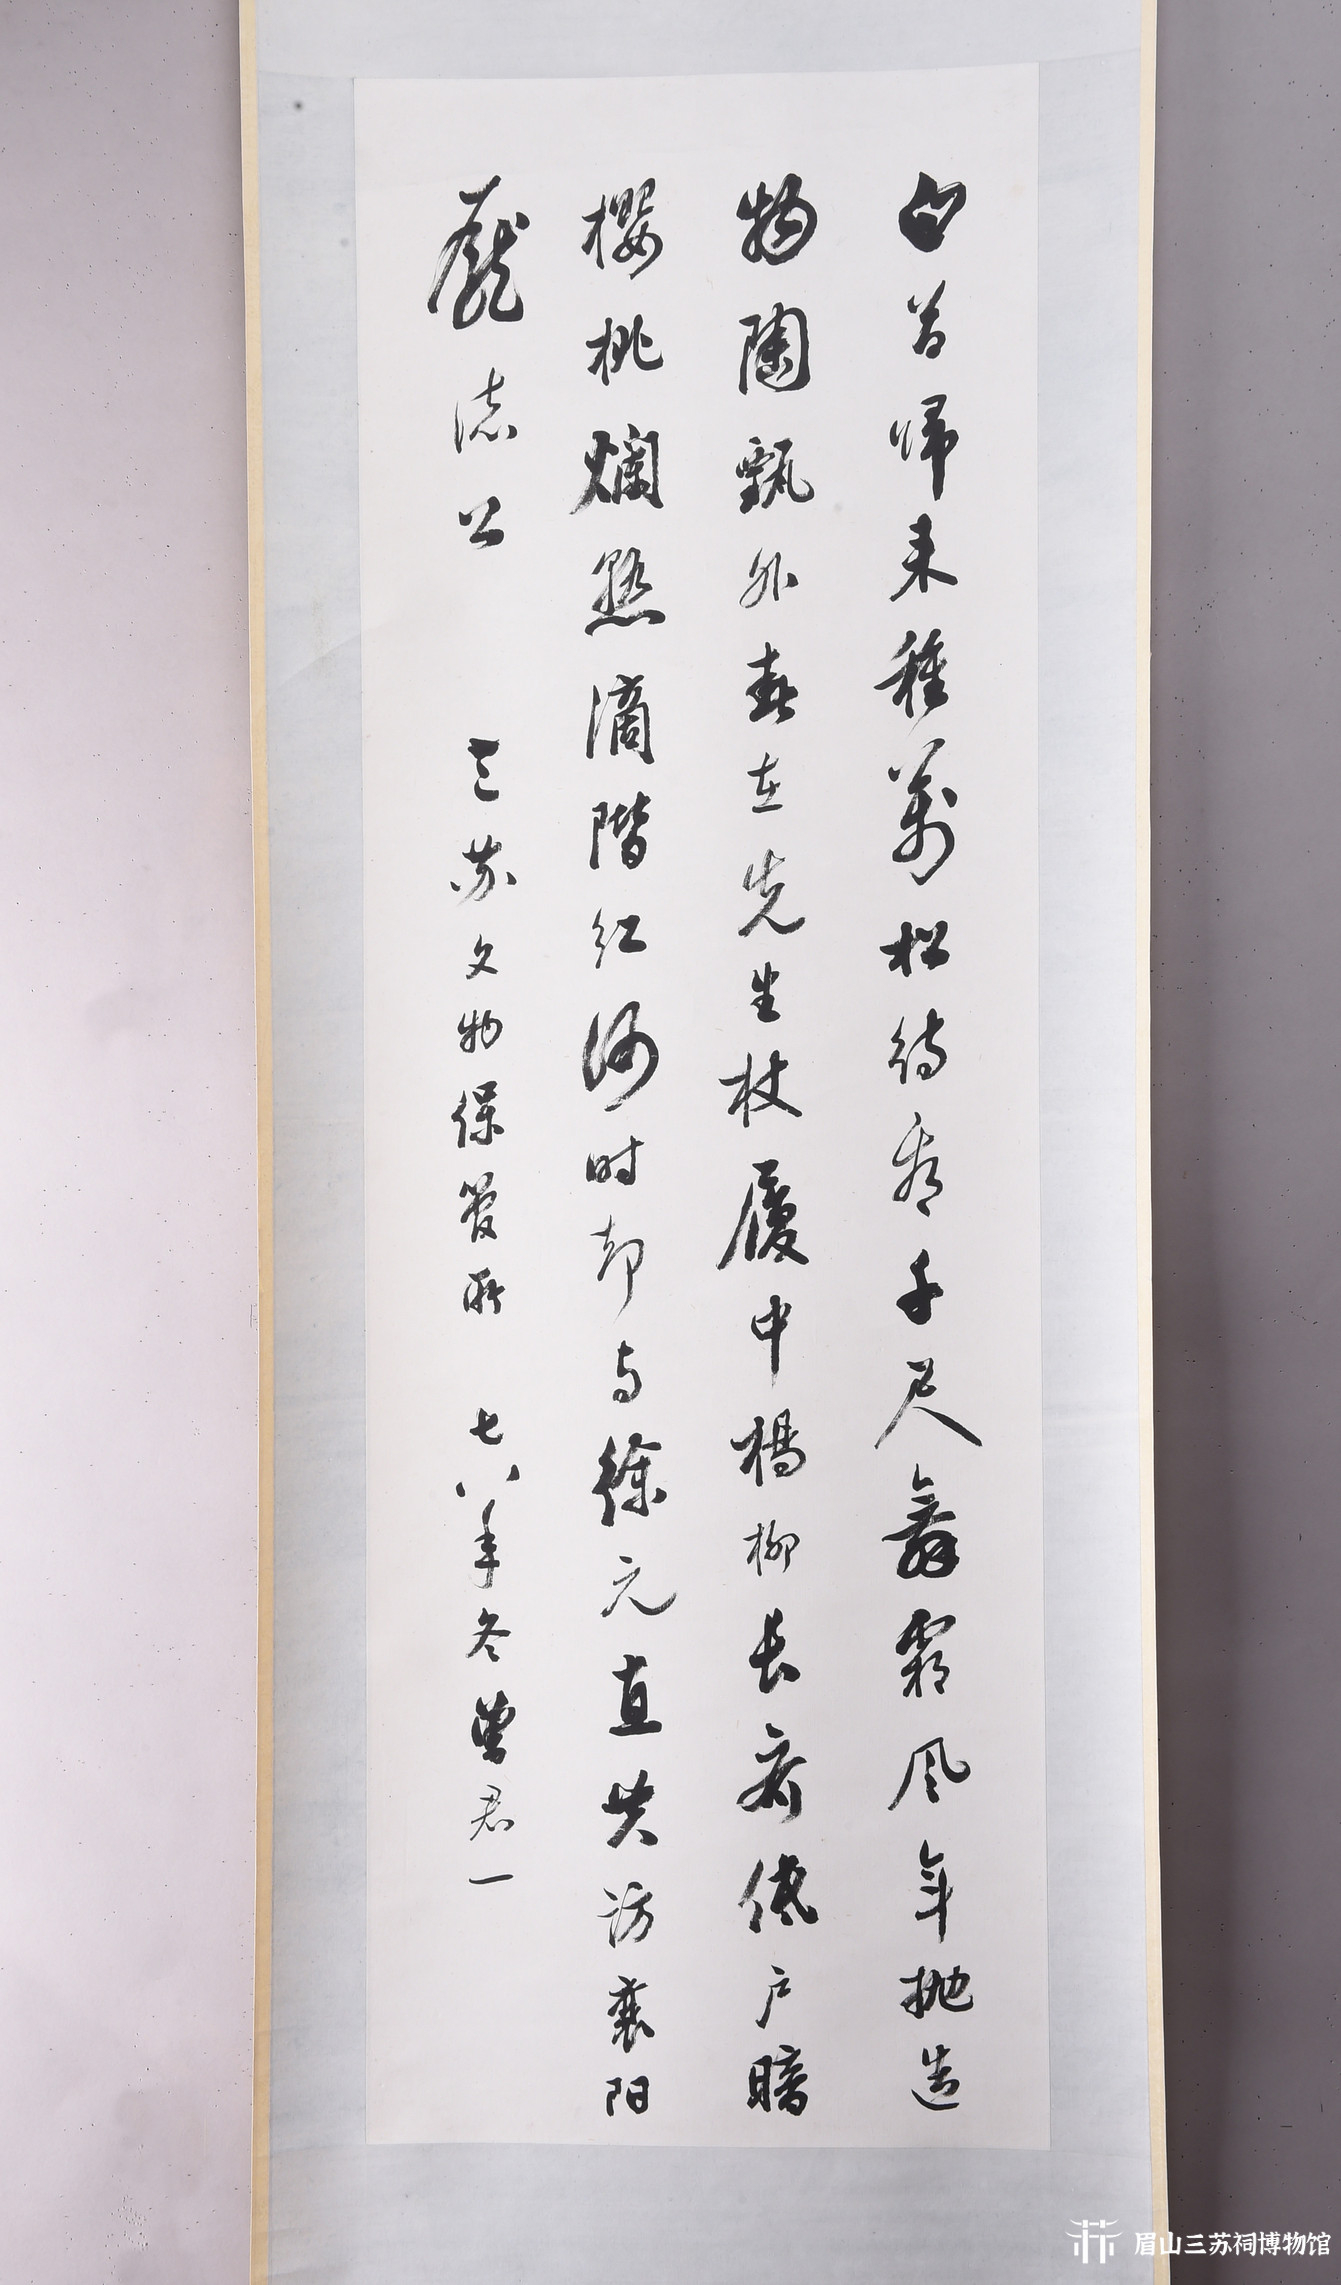 白首歸来種萬松待看千尺舞霜风年抛造
物陶甄外春在先生杖履中楊柳長齐低户暗
櫻桃爛熟滴階红何时却与徐元直共访襄阳
龐德公 三苏文物保管所 七八年冬曾君一
眉山三苏祠博物馆